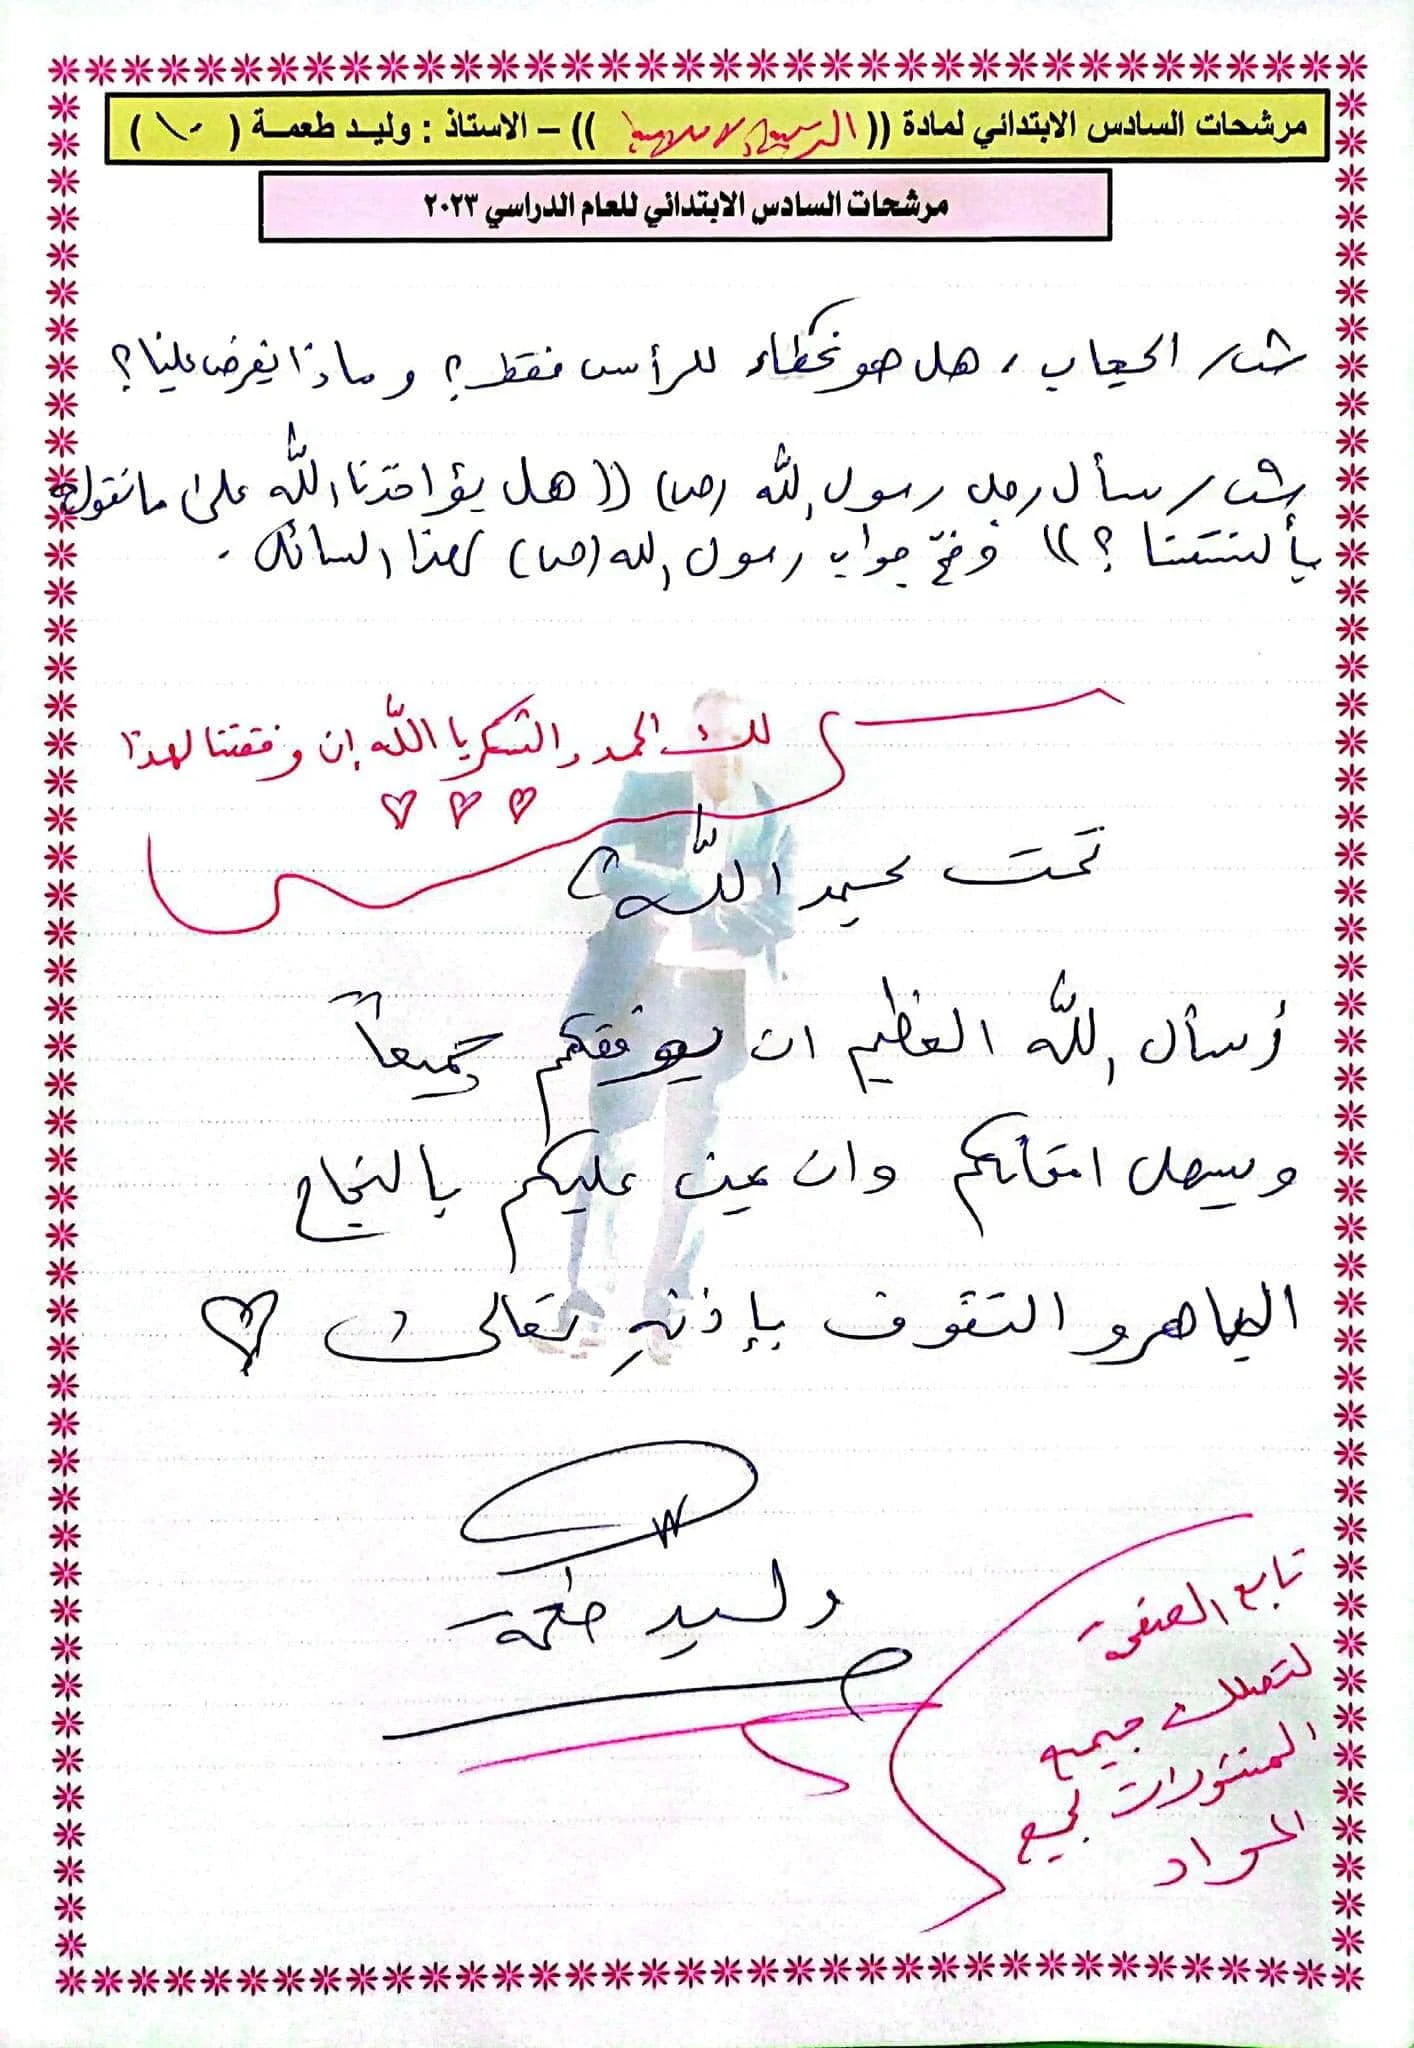 مرشحات السادس الابتدائي لمادة (( التربية الاسلامية )) – الاستاذ : وليد طعمة ( ١٠ )
مرشحات السادس الابتدائي للعام الدراسي ٢٠٢٣
س/ الحجاب ، هل هو غطاء للرأس فقط ؟ و ماذا يفرض علينا ؟
س/ سأل رجل رسول الله (ص) (( هل يؤاخذنا الله على ما نقول
بألسنتنا ؟ )) وضح جواب رسول الله (ص) لهذا السائل .
لك الحمد والشكر يا الله إن وفقتنا لهذا
تمت بحمد الله
أسأل الله العظيم ان يوفقكم جميعاً
ويسهل امتحانكم وان يمن عليكم بالنجاح
الباهر و التفوق بإذنهِ تعالى
وليد طعمة
تابع الصفحة
لتصلك جميع
المنشورات لجميع
المواد